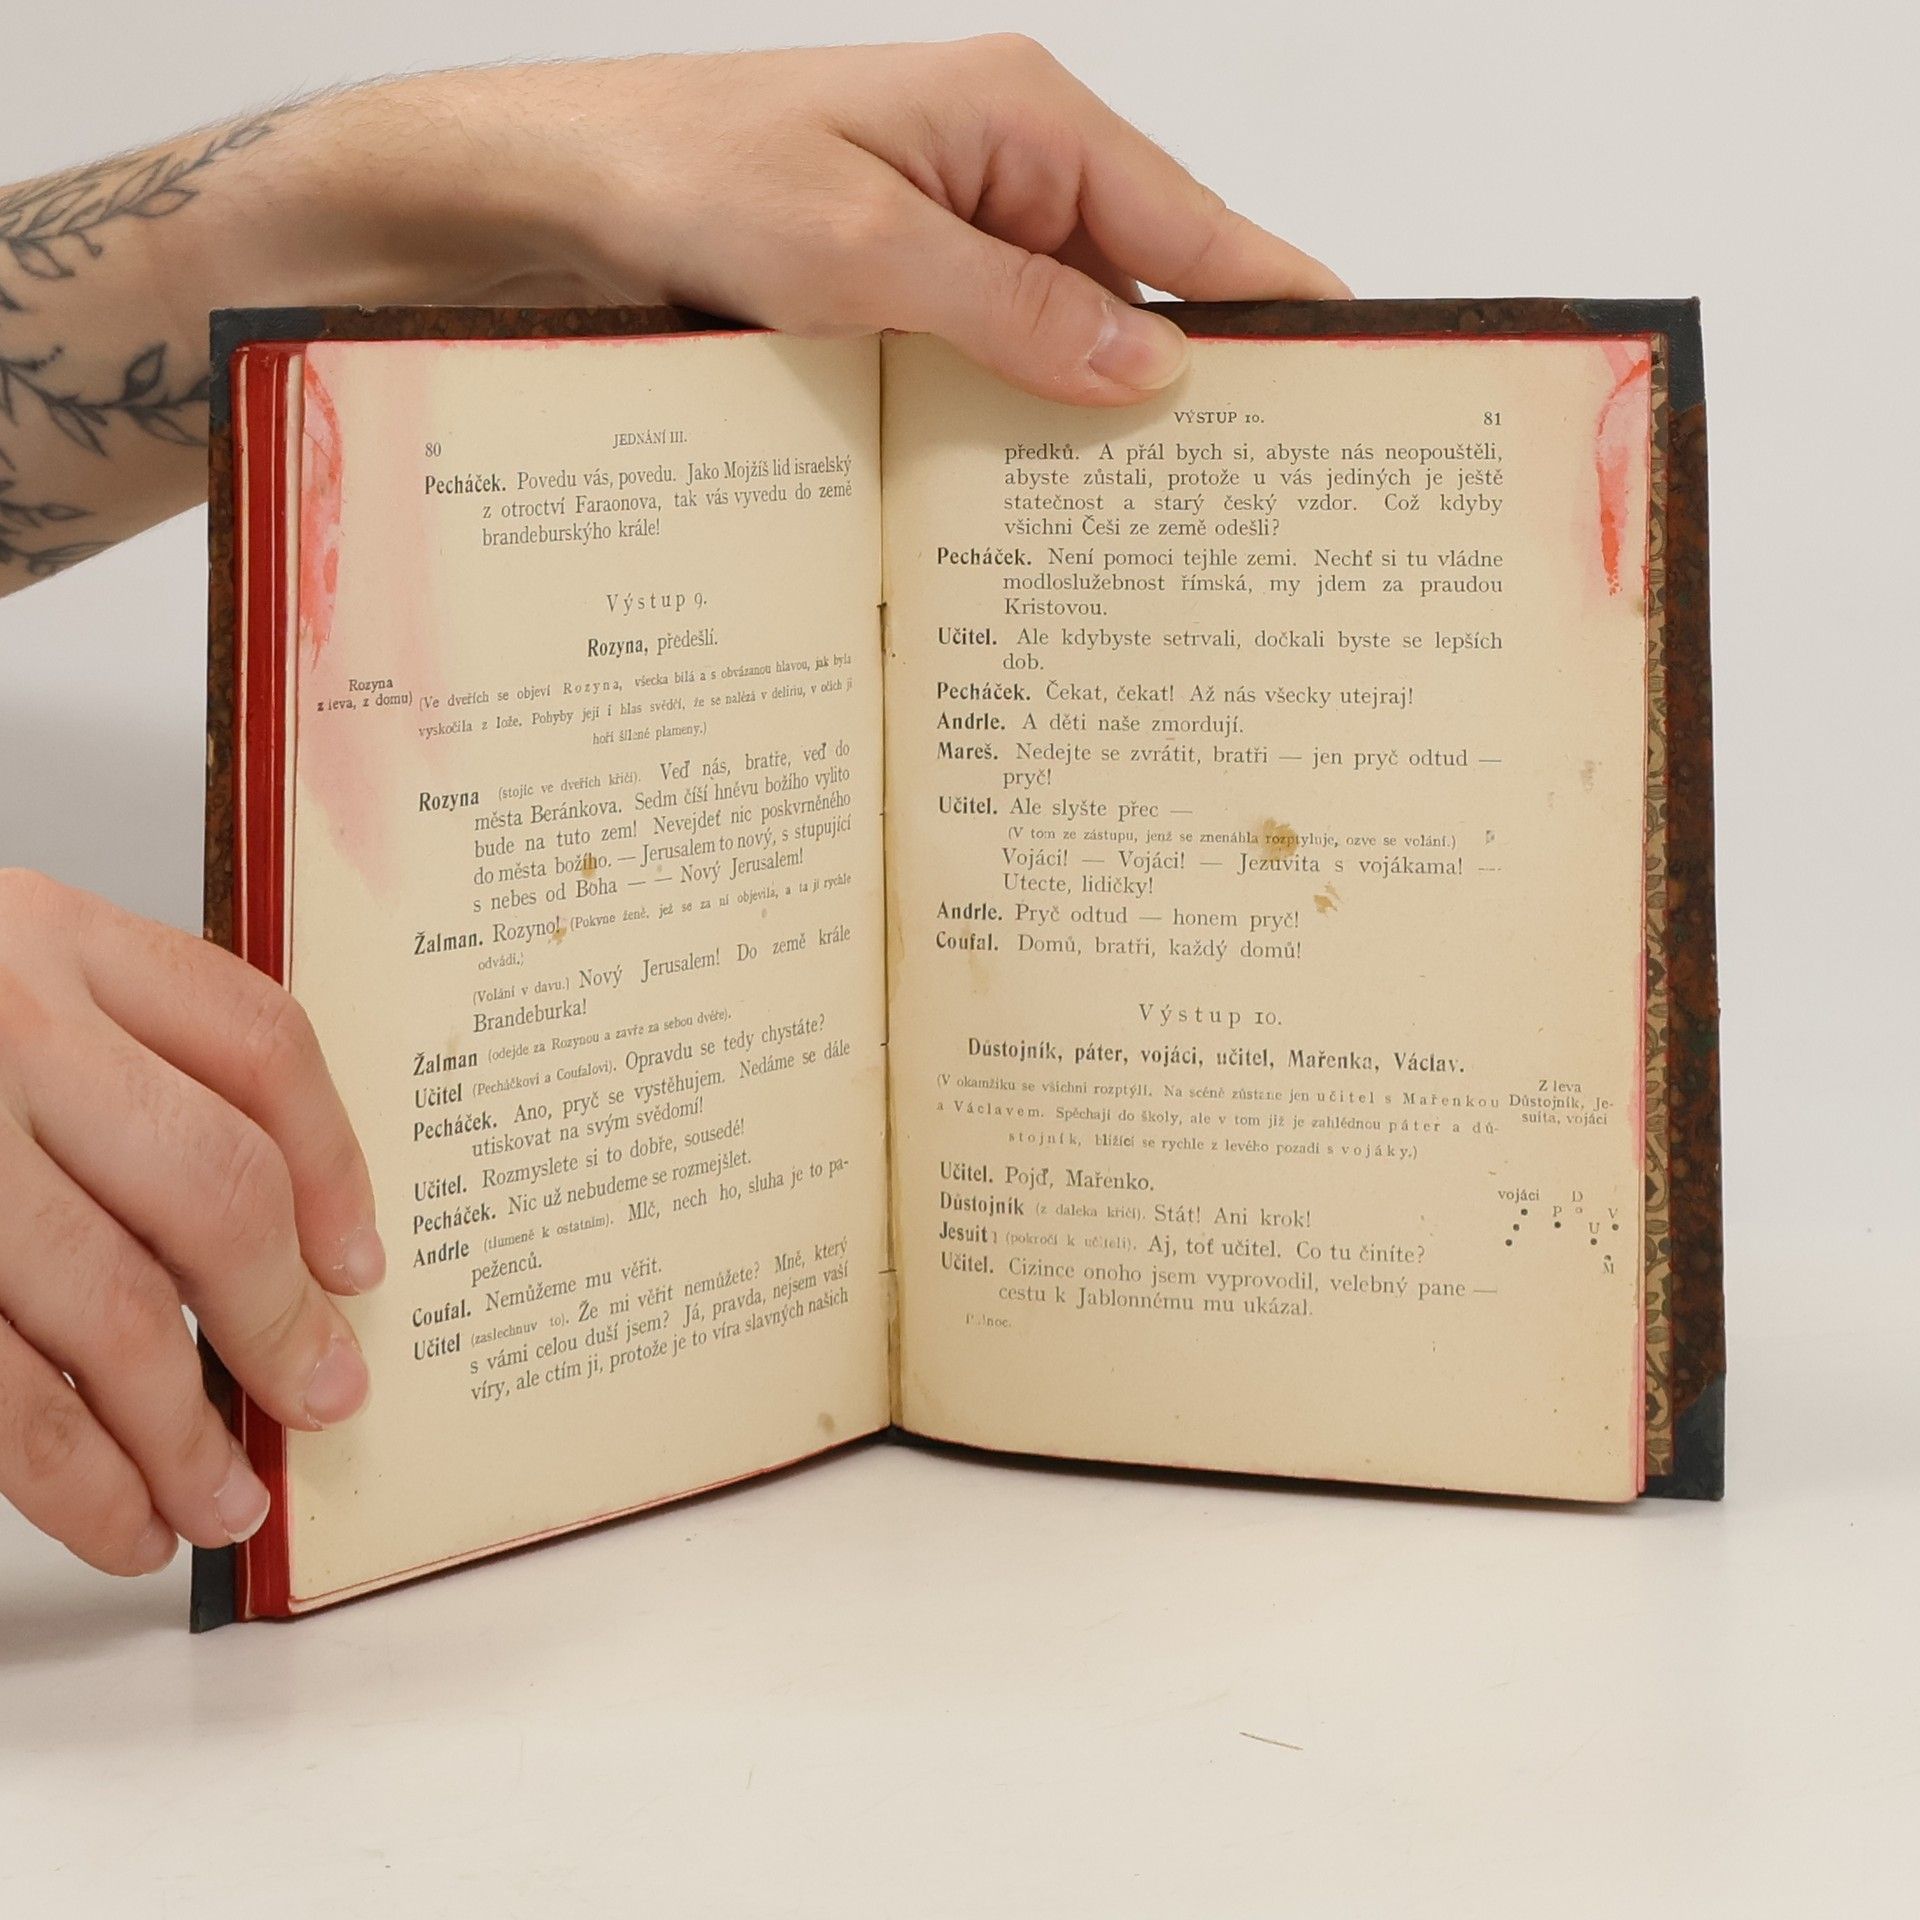 80 JEDNÁNÍ III.
Pecháček. Povedu vás, povedu. Jako Mojžíš lid israelský
z otroctví Faraonova, tak vás vyvedu do země
brandeburskýho krále!
Výstup 9.
Rozyna, předešlí.
Rozyna
z leva, z domu)
(Ve dveřích se objeví Rozyna, všecka bílá a s obvázanou hlavou, jak byla
vyskočila z lože. Pohyby její i hlas svědčí, že se nalézá v deliriu, v očích jí
hoří šílené plameny.)
Rozyna (stojíc ve dveřích křičí). Veď nás, bratře, veď do
města Beránkova. Sedm číší hněvu božího vylito
bude na tuto zem! Nevejdeť nic poskvrněného
do města božího. — Jerusalem to nový, s stupující
s nebes od Boha — — Nový Jerusalem!
Žalman. Rozyno! (Pokyne ženě, jež se za ní objevila, a ta ji rychle
odvádí.)
(Volání v davu.) Nový Jerusalem! Do země krále
Brandeburka!
Žalman (odejde za Rozynou a zavře za sebou dvéře).
Učitel (Pecháčkovi a Coufalovi). Opravdu se tedy chystáte?
Pecháček. Ano, pryč se vystěhujem. Nedáme se dále
utiskovat na svým svědomí!
Učitel. Rozmyslete si to dobře, sousedé!
Pecháček. Nic už nebudeme se rozmejšlet.
Andrle (tlumeně k ostatním). Mlč, nech ho, sluha je to pa-
peženců.
Coufal. Nemůžeme mu věřit.
Učitel (zaslechnuv to). Že mi věřit nemůžete? Mně, který
s vámi celou duší jsem? Já, pravda, nejsem vaší
víry, ale ctím ji, protože je to víra slavných našich
VÝSTUP 10. 81
předků. A přál bych si, abyste nás neopouštěli,
abyste zůstali, protože u vás jediných je ještě
statečnost a starý český vzdor. Což kdyby
všichni Češi ze země odešli?
Pecháček. Není pomoci tejhle zemi. Nechť si tu vládne
modloslužebnost římská, my jdem za praudou
Kristovou.
Učitel. Ale kdybyste setrvali, dočkali byste se lepších
dob.
Pecháček. Čekat, čekat! Až nás všecky utejraj!
Andrle. A děti naše zmordují.
Mareš. Nedejte se zvrátit, bratři — jen pryč odtud —
pryč!
Učitel. Ale slyšte přec —
(V tom ze zástupu, jenž se znenáhla rozptyluje, ozve se volání.)
Vojáci! — Vojáci! — Jezuvita s vojákama! —
Utecte, lidičky!
Andrle. Pryč odtud — honem pryč!
Coufal. Domů, bratři, každý domů!
Výstup 10.
Důstojník, páter, vojáci, učitel, Mařenka, Václav.
(V okamžiku se všichni rozptýlí. Na scéně zůstane jen učitel s Mařenkou
a Václavem. Spěchají do školy, ale v tom již je zahlédnou páter a dů-
stojník, blížící se rychle z levého pozadí s vojáky.)
Z leva
Důstojník, Je-
suita, vojáci
Učitel. Pojď, Mařenko.
Důstojník (z daleka křičí). Stát! Ani krok!
Jesuit (pokročí k učiteli). Aj, toť učitel. Co tu činíte?
Učitel. Cizince onoho jsem vyprovodil, velebný pane —
cestu k Jablonnému mu ukázal.
vojáci D
P V
U
M